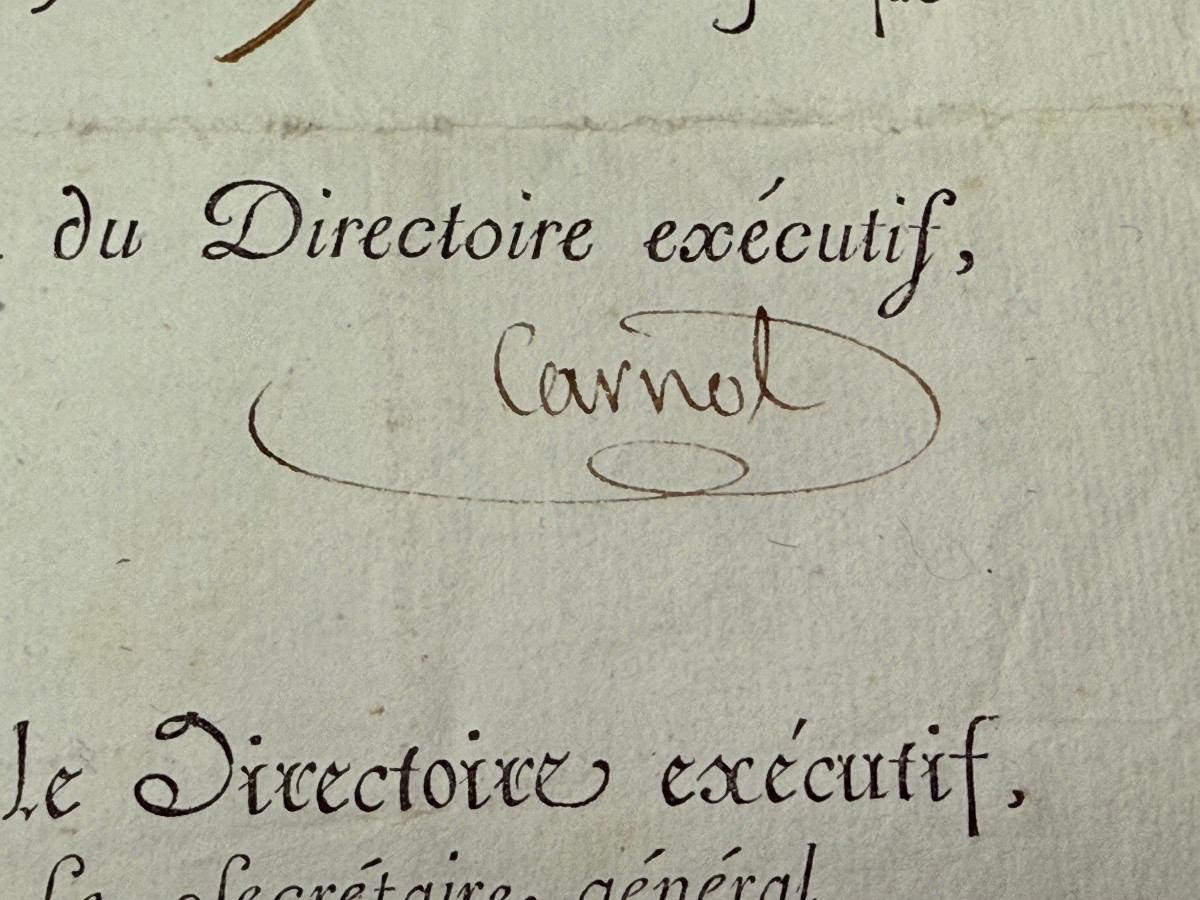 du Directoire exécutif,
Carnot
le Directoire exécutif,
Le Secrétaire général